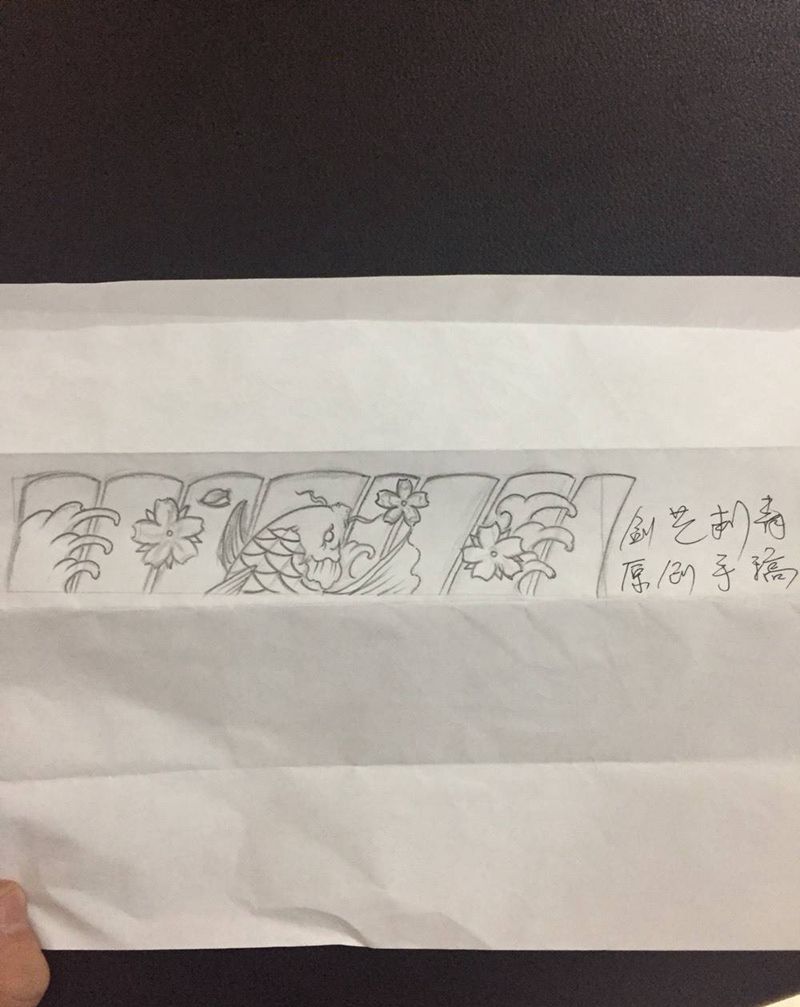 剑艺刺青
原创手稿